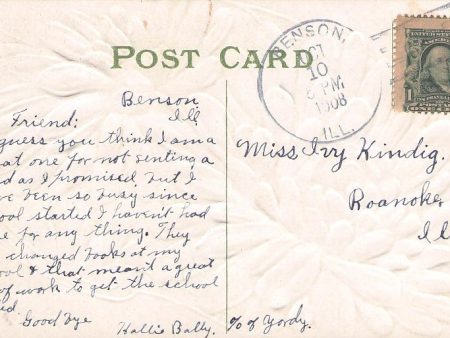 POST CARD
BENSON,
OCT
10
6 PM
1908
ILL.
Benson
Ill.
Friend:
guess you think I am a
at one for not senting a
d as I promised, but I
ve been so busy since
ool started I haven't had
e for any thing. They
changed books at my
ool & that meant a great
of work to get the school
ed.
Good bye
Hallie Bally.
Miss Ivy Kindig.
Roanoke,
Ill
% of Yordy.